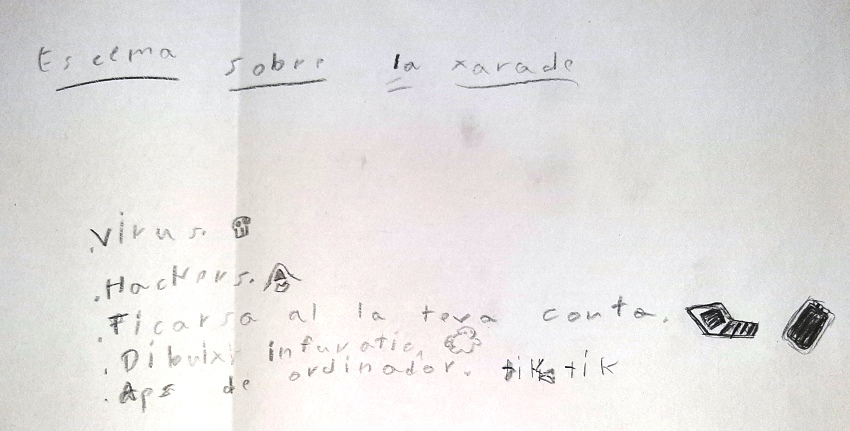 Es celma sobre la xarade
.Virus.
.Hackers.
.Ficarsa al la teva conta.
.Dibuix infuratic.
.Aps de ordinador. tik tik